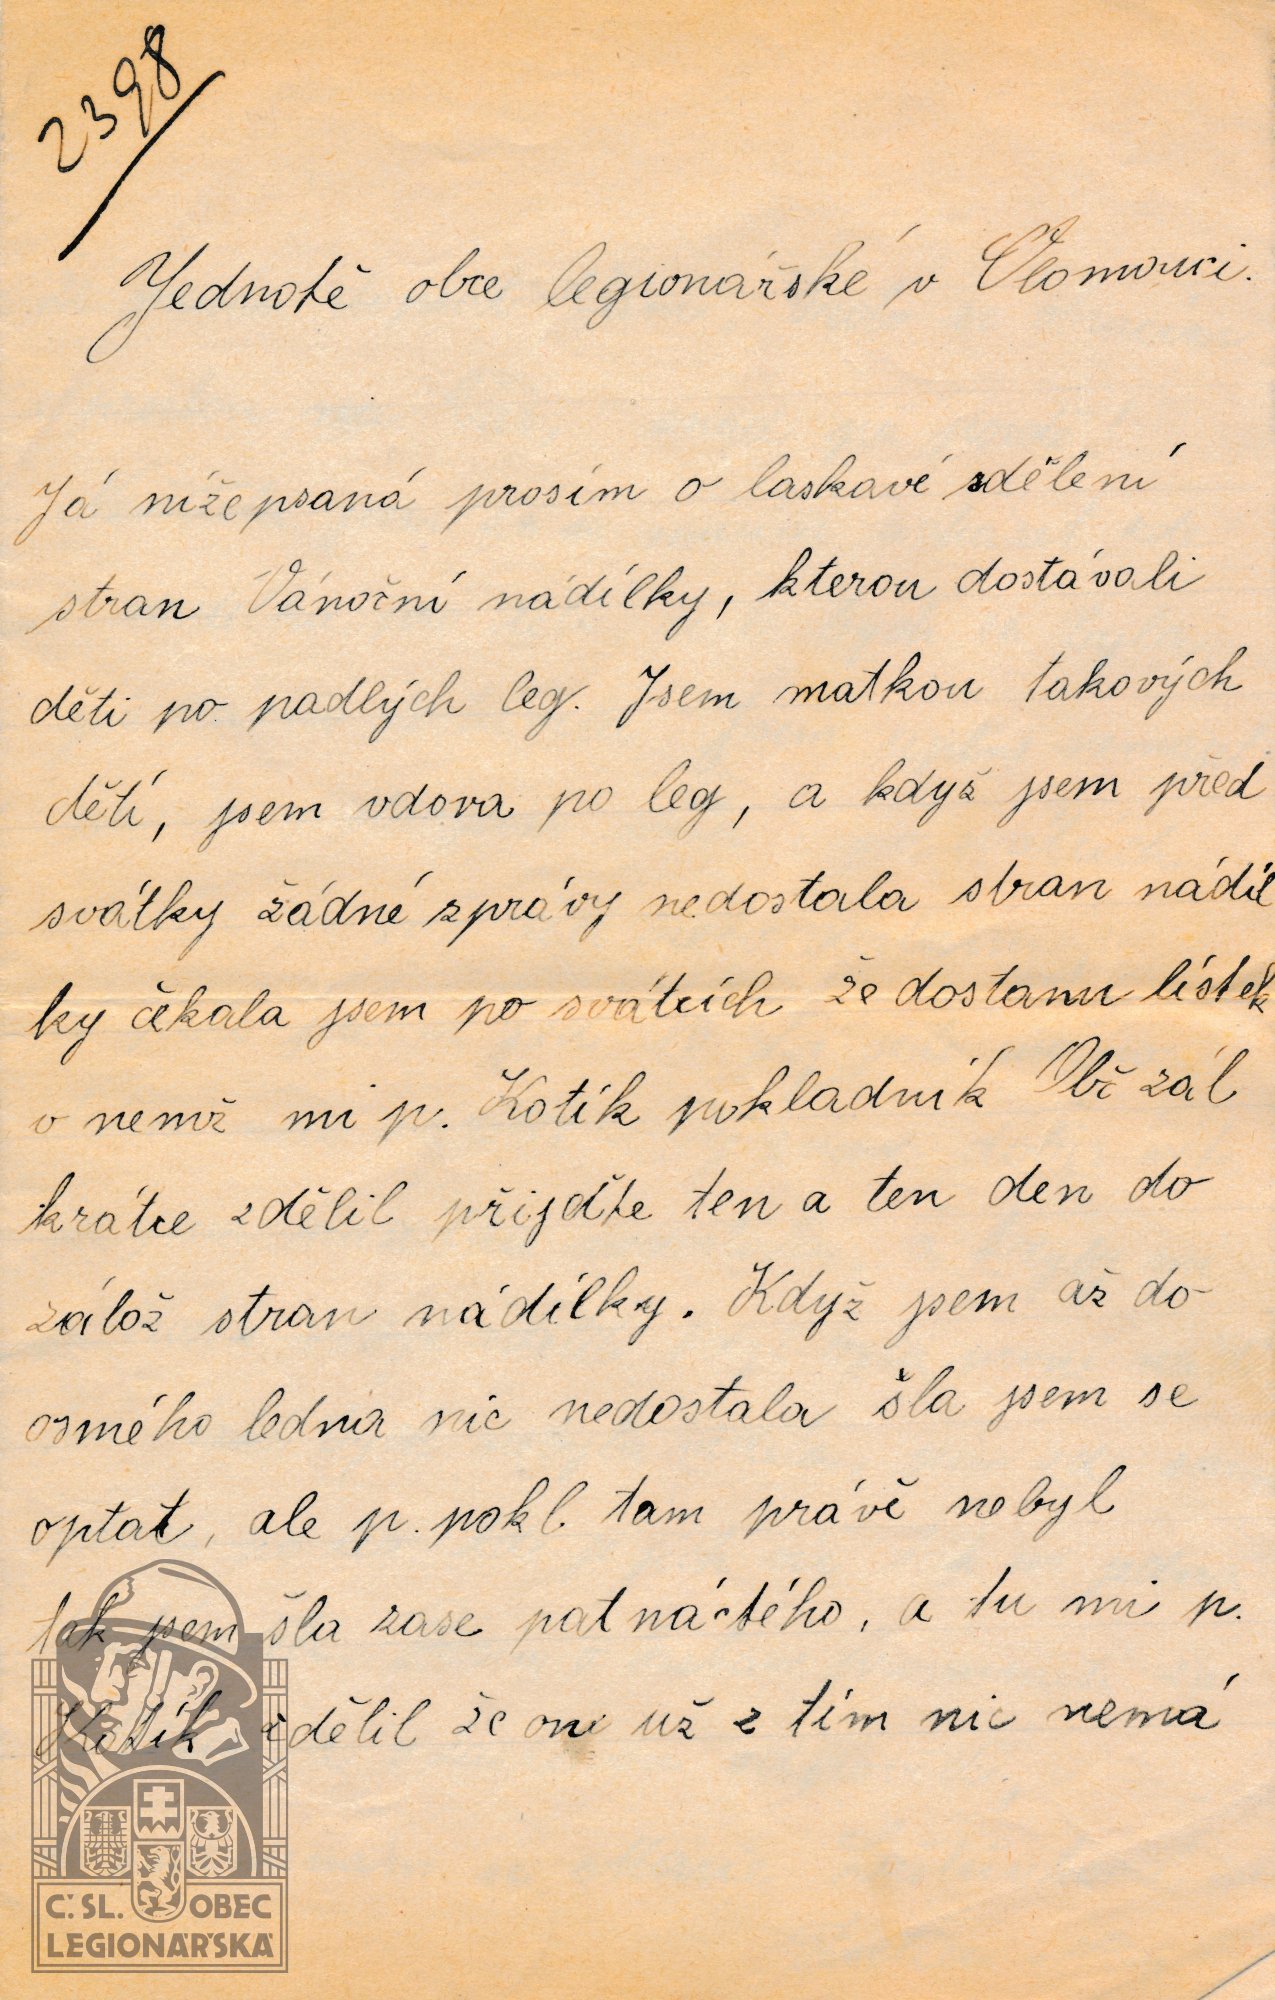 2398
Jednotě obce legionářské v Olomouci.
Já nížepsaná prosím o laskavé sdělení
stran Vánoční nádílky, kterou dostávali
děti po padlých leg. Jsem matkou takových
dětí, jsem vdova po leg, a když jsem před
svátky žádné zprávy nedostala stran nádíl
ky čekala jsem po svátcích že dostanu lístek
v nemž mi p. Kotík pokladník Obč zál
krátce zdělil přijďte ten a ten den do
zálož stran nádílky. Když jsem až do
osmého ledna nic nedostala šla jsem se
optat, ale p. pokl. tam právě nebyl
tak jsem šla zase patnáctého, a tu mi p.
Kotík zdělil že on už z tím nic nemá
Č. SL. OBEC
LEGIONÁŘSKÁ